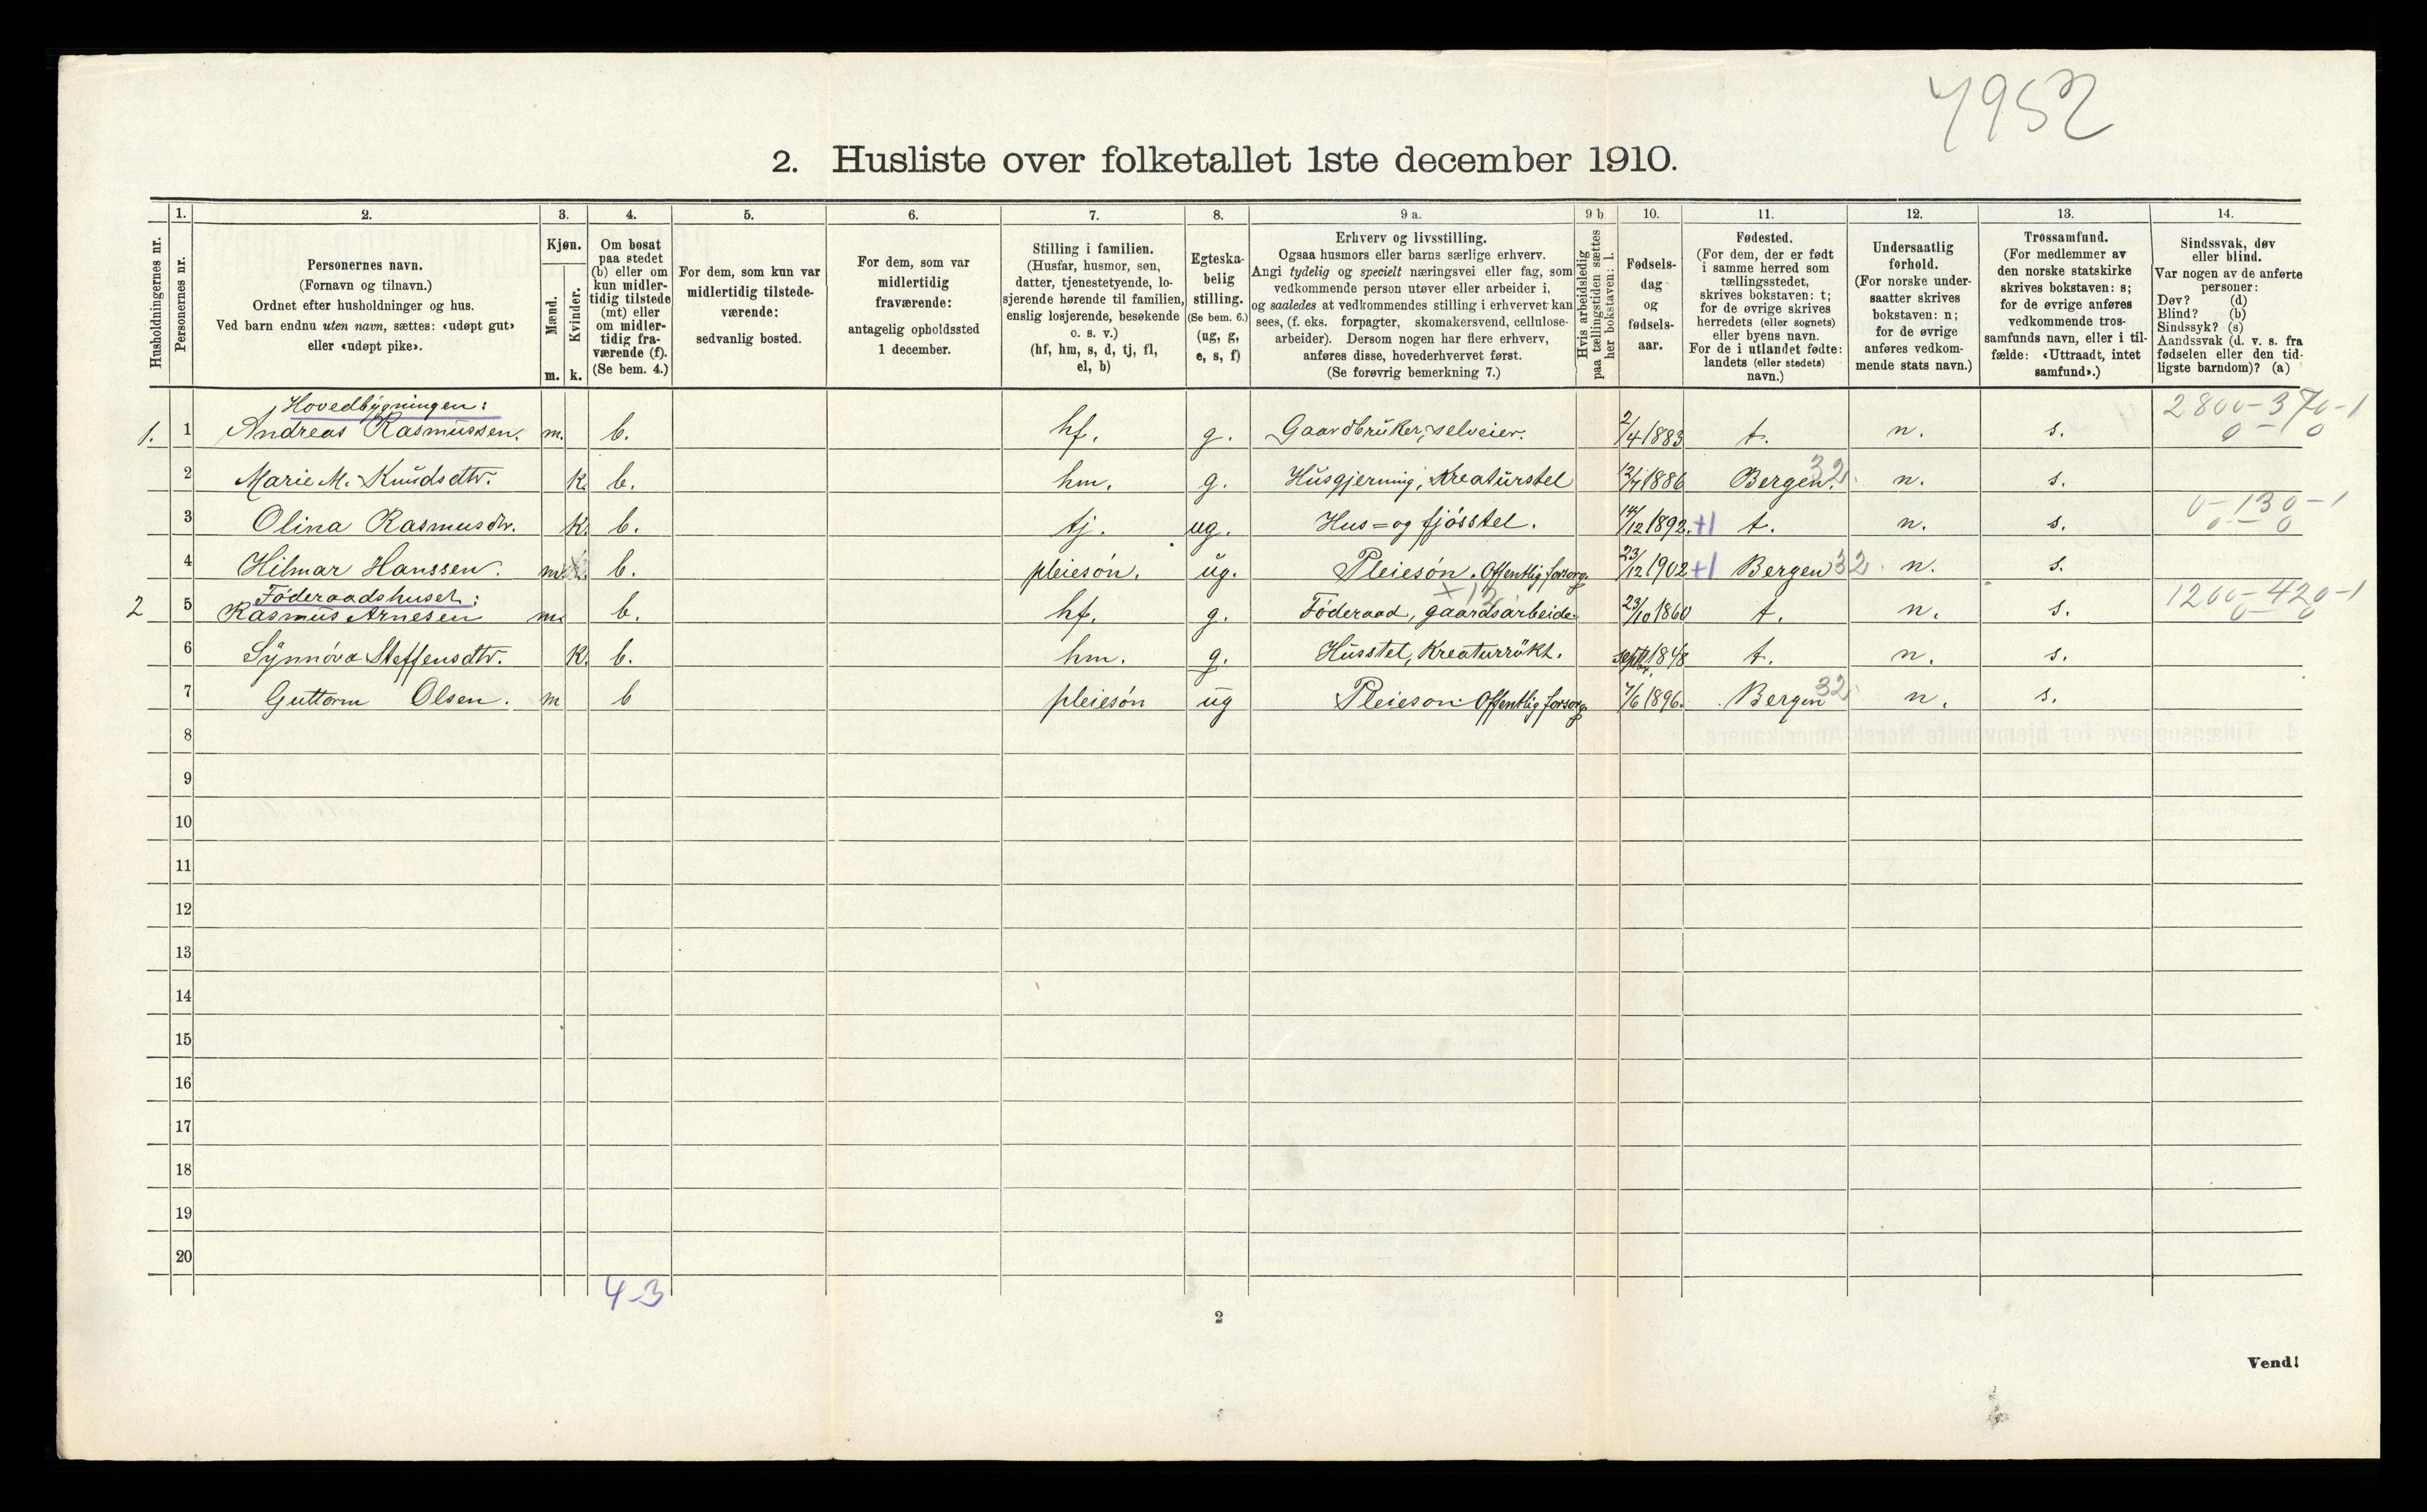 4952
2. Husliste over folketallet 1ste december 1910.
Husholdningernes nr.
1.
Personernes nr.
2.
Personernes navn.
(Fornavn og tilnavn.)
Ordnet efter husholdninger og hus.
Ved barn endnu uten navn, sættes: «udøpt gut»
eller «udøpt pike».
3.
Kjøn.
Mænd.
m.
Kvinder.
k.
4.
Om bosat
paa stedet
(b) eller om
kun midler-
tidig tilstede
(mt) eller
om midler-
tidig fra-
værende (f).
(Se bem. 4.)
5.
For dem, som kun var
midlertidig tilstede-
værende:
sedvanlig bosted.
6.
For dem, som var
midlertidig
fraværende:
antagelig opholdssted
1 december.
7.
Stilling i familien.
(Husfar, husmor, søn,
datter, tjenestetyende, lo-
sjerende hørende til familien,
enslig losjerende, besøkende
o. s. v.)
(hf, hm, s, d, tj, fl,
el, b)
8.
Egteska-
belig
stilling.
(Se bem. 6.)
(ug, g,
e, s, f)
9 a.
Erhverv og livsstilling.
Ogsaa husmors eller barns særlige erhverv.
Angi tydelig og specielt næringsvei eller fag, som
vedkommende person utøver eller arbeider i,
og saaledes at vedkommendes stilling i erhvervet kan
sees, (f. eks. forpagter, skomakersvend, cellulose-
arbeider). Dersom nogen har flere erhverv,
anføres disse, hovederhvervet først.
(Se forøvrig bemerkning 7.)
9 b
Hvis arbeidsledig
paa tællingstiden sættes
her bokstaven: l.
10.
Fødsels-
dag
og
fødsels-
aar.
11.
Fødested.
(For dem, der er født
i samme herred som
tællingsstedet,
skrives bokstaven: t;
for de øvrige skrives
herredets (eller sognets)
eller byens navn.
For de i utlandet fødte:
landets (eller stedets)
navn.)
12.
Undersaatlig
forhold.
(For norske under-
saatter skrives
bokstaven: n;
for de øvrige
anføres vedkom-
mende stats navn.)
13.
Trossamfund.
(For medlemmer av
den norske statskirke
skrives bokstaven: s;
for de øvrige anføres
vedkommende tros-
samfunds navn, eller i til-
fælde: «Uttraadt, intet
samfund».)
14.
Sindssvak, døv
eller blind.
Var nogen av de anførte
personer:
Døv? (d)
Blind? (b)
Sindssyk? (s)
Aandssvak (d. v. s. fra
fødselen eller den tid-
ligste barndom)? (a)
Hovedbygningen:
2800-370-1
1. 1 Andreas Rasmussen. m. b. hf. g. Gaardbruker, selveier. 2/4 1883 t. n. s. 0-0
2 Marie M. Knudsdtr. k. b. hm. g. Husgjerning, Kreaturstel 1886 Bergen. 32 n. s.
0-130-1
3 Olina Rasmusdtr. k. b. tj. ug. Hus= og fjösstel. 14/12 1892. +1 t. n. s. 0-0
4 Hilmar Hanssen. m. b. pleiesön. ug. Pleiesön. Offentlig forsorg. 23/12 1902 +1 Bergen 32 n. s.
Föderaadshuset:
1200-420-1
2 5 Rasmus Arnesen m. b. hf. g. Föderaad, gaardsarbeide. 23/10 1860 t. n. s. 0-0
6 Synnöva Steffensdtr. k. b. hm. g. Husstel, Kreaturrökt. 1848 t. n. s.
7 Guttorm Olsen. m b pleiesön ug Pleieson Offentlig forsorg. 7/6 1896. Bergen 32 n. s.
8
9
10
11
12
13
14
15
16
17
18
19
20
4-3
2
Vend!